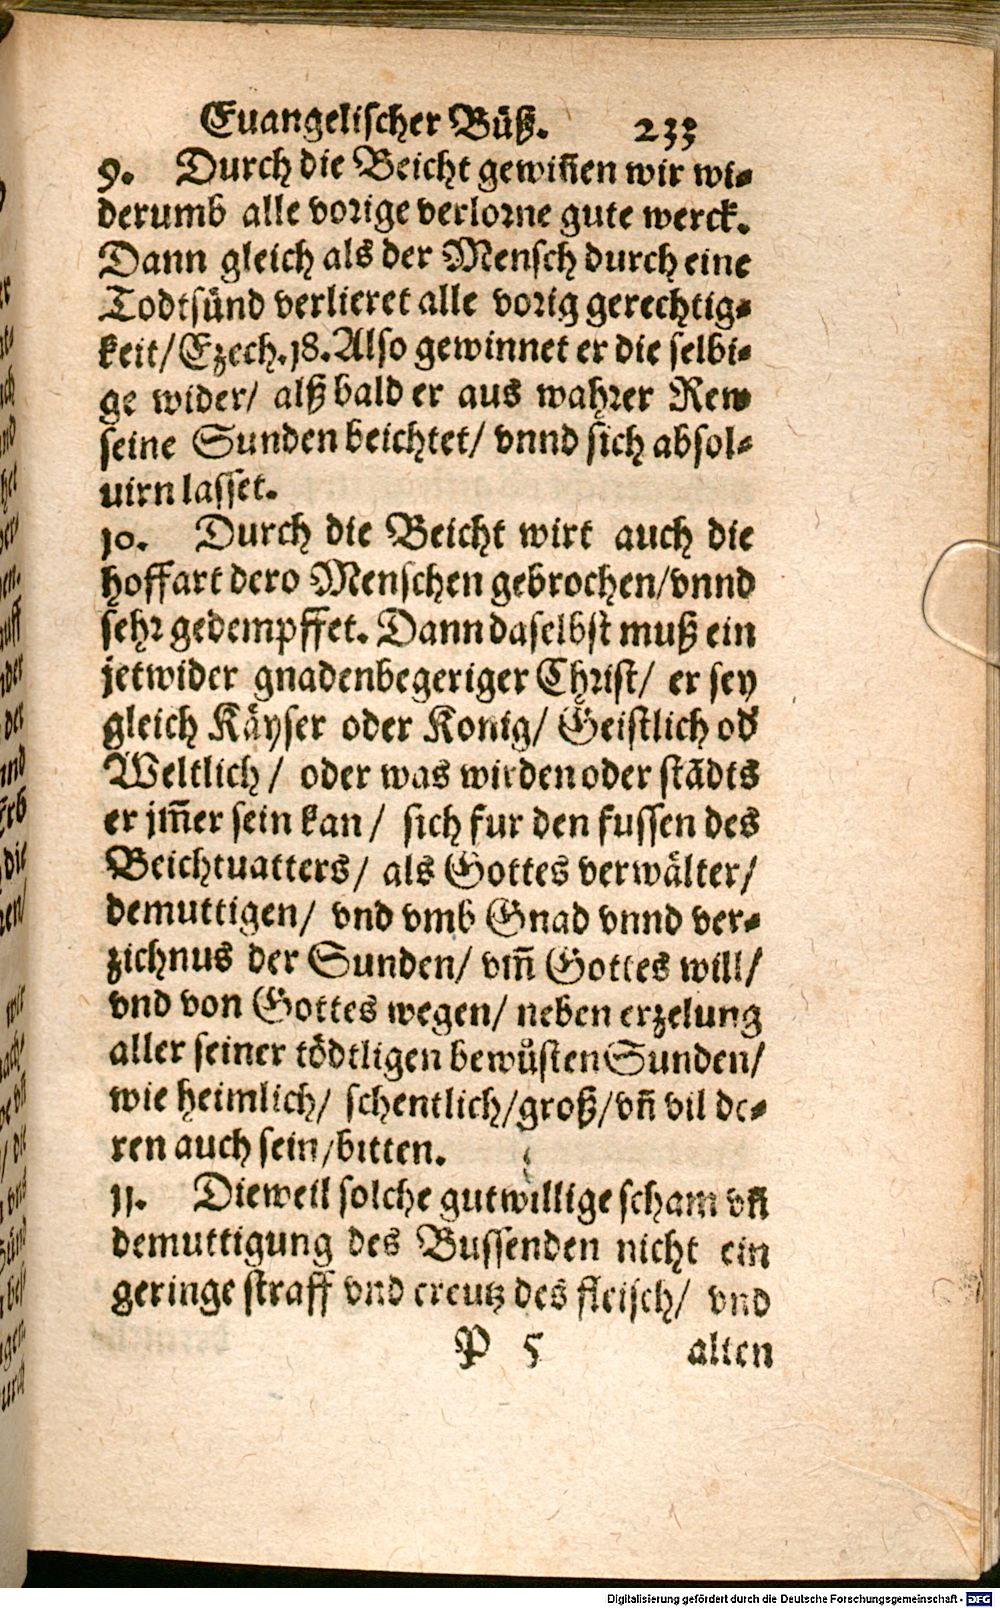 Euangelischer Büß. 233
9. Durch die Beicht gewiñen wir wi-
derumb alle vorige verlorne gute werck.
Dann gleich als der Mensch durch eine
Todtsünd verlieret alle vorig gerechtig-
keit/Ezech.18. Also gewinnet er die selbi-
ge wider/ alß bald er aus wahrer Rew
seine Sunden beichtet/ vnnd sich absol-
uirn lasset.
10. Durch die Beicht wirt auch die
hoffart dero Menschen gebrochen/vnnd
sehr gedempffet. Dann daselbst muß ein
jetwider gnadenbegeriger Christ/ er sey
gleich Käyser oder Konig/ Geistlich od'
Weltlich/ oder was wirden oder städts
er jm̃er sein kan/ sich fur den fussen des
Beichtuatters/ als Gottes verwälter/
demuttigen/ vnd vmb Gnad vnnd ver-
zichnus der Sunden/ vm̃ Gottes will/
vnd von Gottes wegen/ neben erzelung
aller seiner tödtligen bewůsten Sunden/
wie heimlich/ schentlich/groß/vñ vil de-
ren auch sein/bitten.
11. Dieweil solche gutwillige scham vñ
demuttigung des Bussenden nicht ein
geringe straff vnd creutz des fleisch/ vnd
P 5 alten
Digitalisierung gefördert durch die Deutsche Forschungsgemeinschaft - DFG